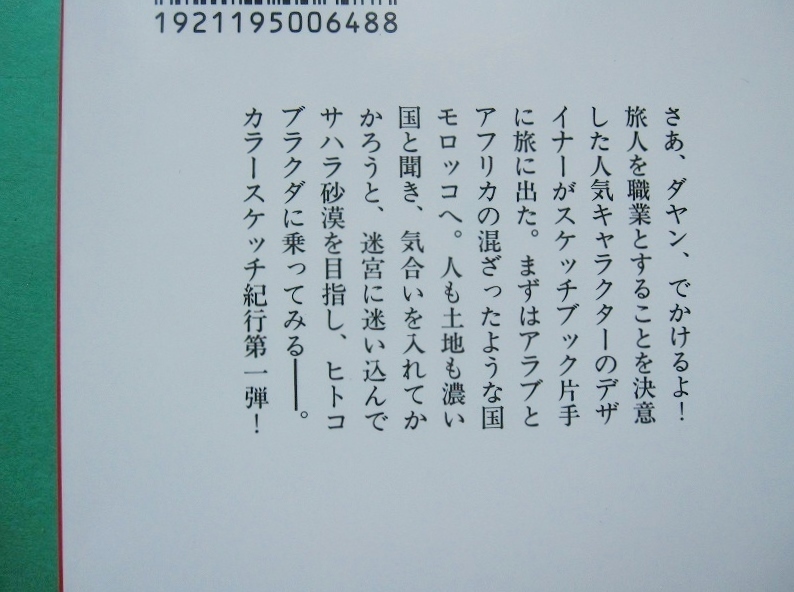 1921195006488
さあ、ダヤン、でかけるよ！
旅人を職業とすることを決意
した人気キャラクターのデザ
イナーがスケッチブック片手
に旅に出た。まずはアラブと
アフリカの混ざったような国
モロッコへ。人も土地も濃い
国と聞き、気合いを入れてか
かろうと、迷宮に迷い込んで
サハラ砂漠を目指し、ヒトコ
ブラクダに乗ってみる――。
カラースケッチ紀行第一弾！